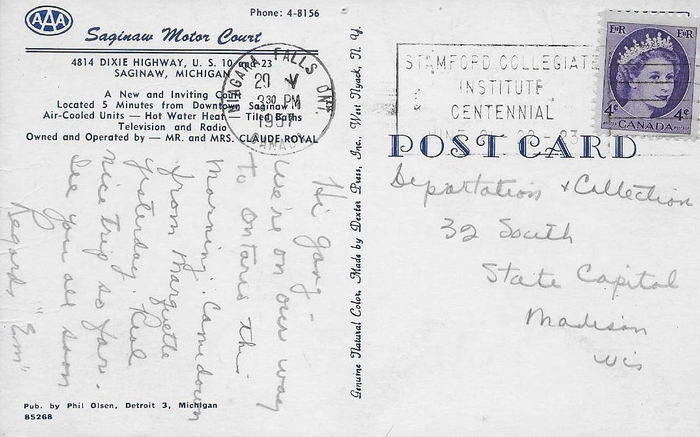 AAA
Saginaw Motor Court
Phone: 4-8156
4814 DIXIE HIGHWAY, U. S. 10 and 23
SAGINAW, MICHIGAN
A New and Inviting Court
Located 5 Minutes from Downtown Saginaw
Air-Cooled Units — Hot Water Heat — Tiled Baths
Television and Radio
Owned and Operated by — MR. and MRS. CLAUDE ROYAL
NIAGARA FALLS ONT.
29 V
3 30 PM
1957
CANADA
STAMFORD COLLEGIATE
INSTITUTE
CENTENNIAL
EIIR EIIR
4¢ 4¢
CANADA
POST CARD
Hi Gang -
We're on our way
to Ontario this
morning. Came down
from Marquette
yesterday. Real
nice trip so far.
See you all soon
Regards "Em"
Genuine Natural Color, Made by Dexter Press, Inc., West Nyack, N. Y.
Deportation & Collection
32 South
State Capital
Madison
Wis
Pub. by Phil Olsen, Detroit 3, Michigan
85268